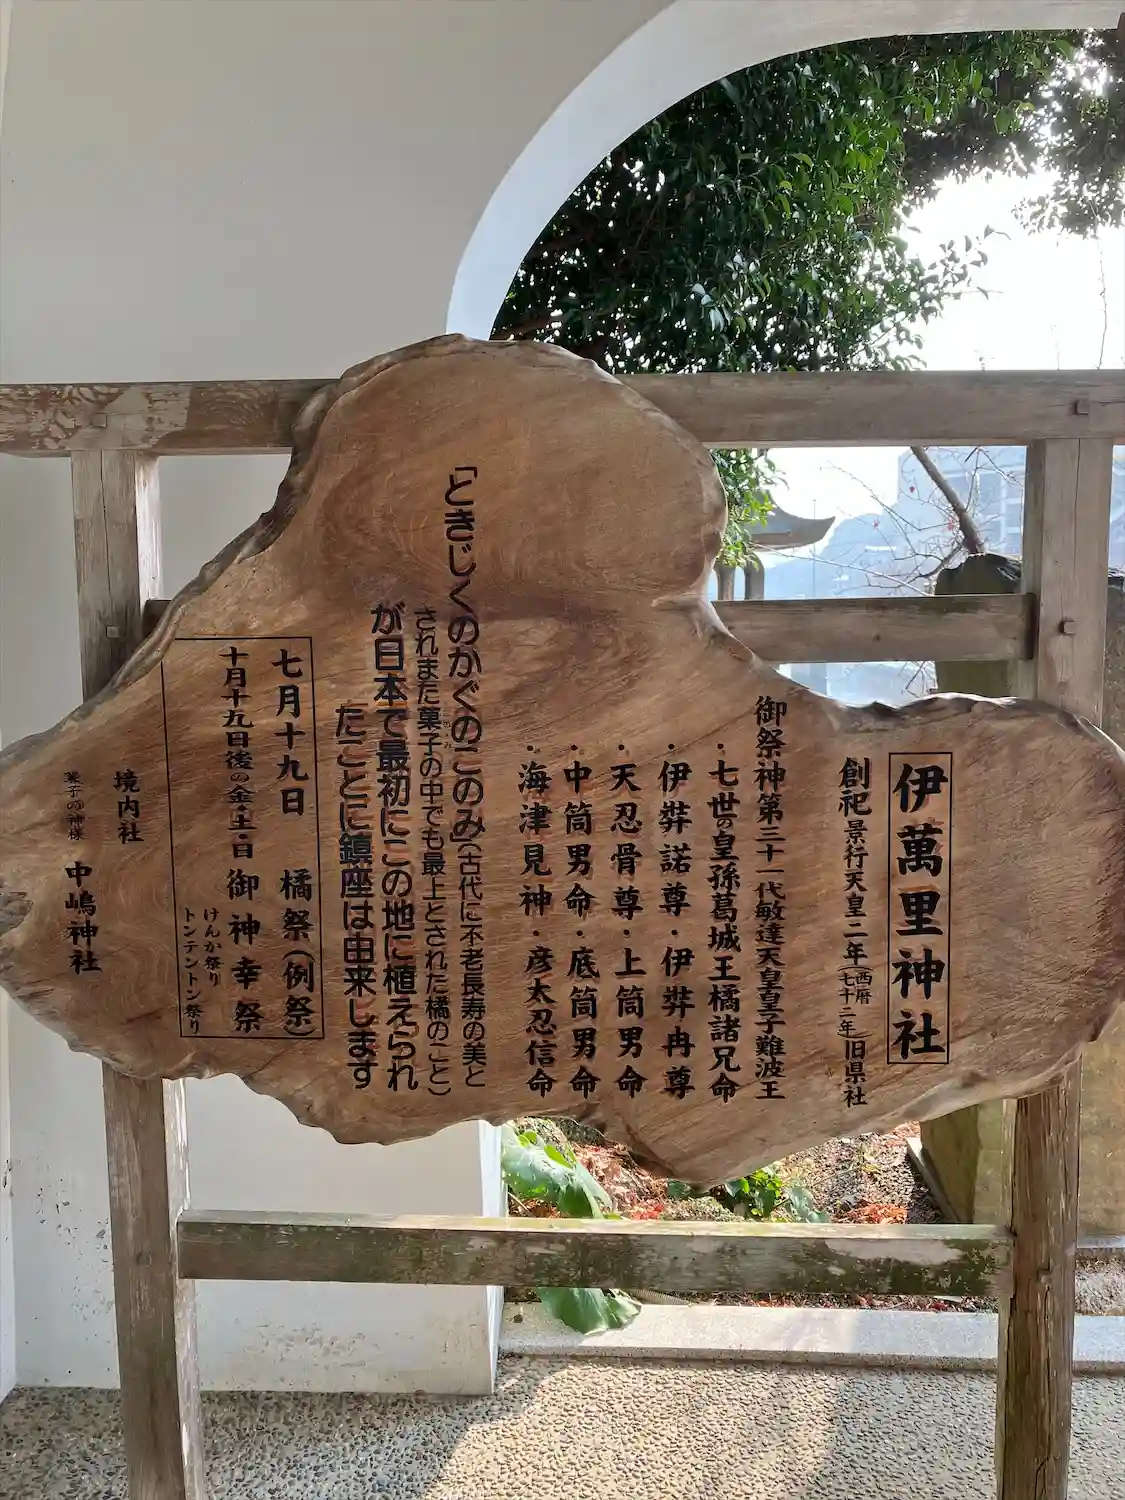 伊萬里神社
創祀 景行天皇二年(西暦七十二年)旧県社
御祭神第三十一代敏達天皇皇子難波王
・七世皇孫葛城王橘諸兄命
・伊弉諾尊・伊弉冉尊
・天忍骨尊・上筒男命
・中筒男命・底筒男命
・海津見神・彦太忍信命
「ときじくのかぐのこのみ(古代に不老長寿の美と
されまた菓子の中でも最上とされた橘のこと)
が日本で最初にこの地に植えられ
たことに鎮座は由来します
七月十九日 橘祭(例祭)
十月十九日後の金・土・日 御神幸祭
けんか祭り
トンテントン祭り
境内社
菓子の神様 中嶋神社